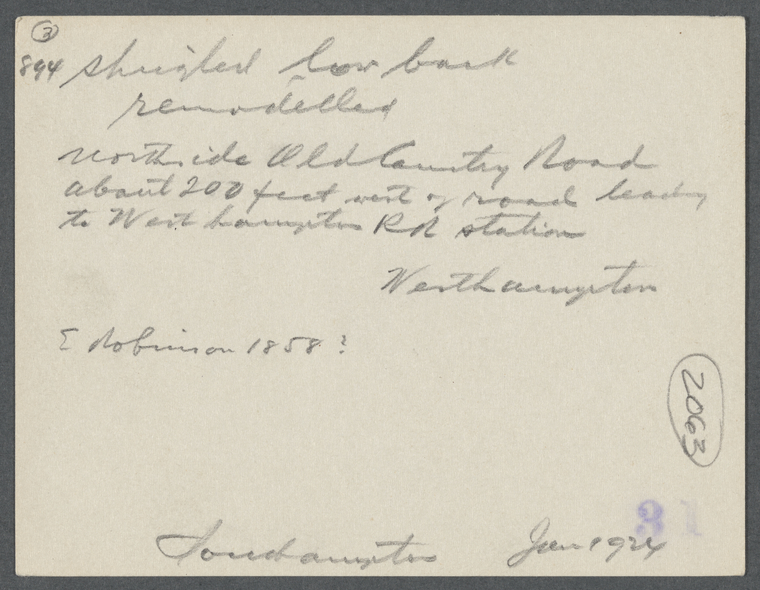 3
894 shingled low back
remodelled
north side Old Country Road
about 200 feet west of road leading
to Westhampton RR station
Westhampton
E Robinson 1858?
2063
31
Southampton Jan 1924